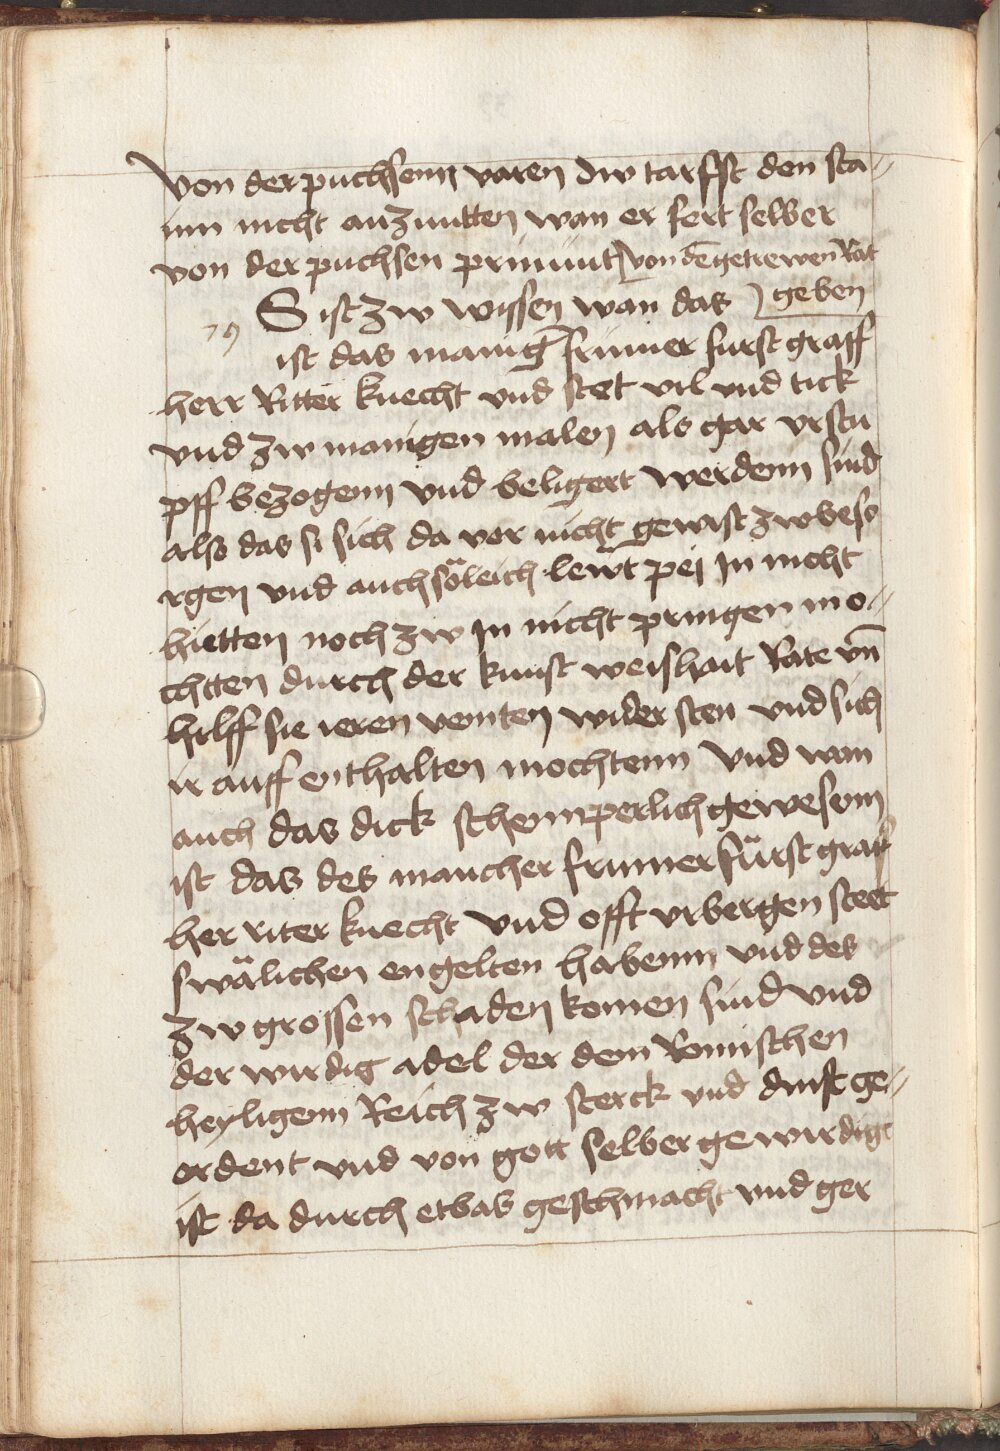 Von der puchsenn varen Dw tarfst den sta⸗
inn nicht anzuntten wan er fert selber
von der puchsen prinnüt von dē getrewen Rat
geben
S ist zw wissen wan das
79
ist das manig frumer furst graff
herr Ritter knecht vnd stet vil vnd tick
vnd zw manigen malen als gar vrstu
pff bezogenn vnd beligert werdenn sind
also das si sich da vor nicht gewist zw beso
rgen vnd auch söleich lewt pej In nicht
hietten noch zw In nicht pringen mo⸗
chtten durch der kunst weishait Rate vn̄
hilff sie ieren veinten wider sten vnd sich
ir auff enthalten mochtenn Vnd wan
auch das dick schemperlich gewesenn
ist das des mancher frumer fürst graff
her riter knecht vnd offt vrbergen steet
swälichen engelten habenn vnd des
zw grossen schaden komen sind vnd
der wirdig adel der dem Romischen
heyligenn Reich zw sterck vnd dinst ge⸗
ordent vnd von gott selber gewirdigt
ist da durch etbas geschmacht vnd ger